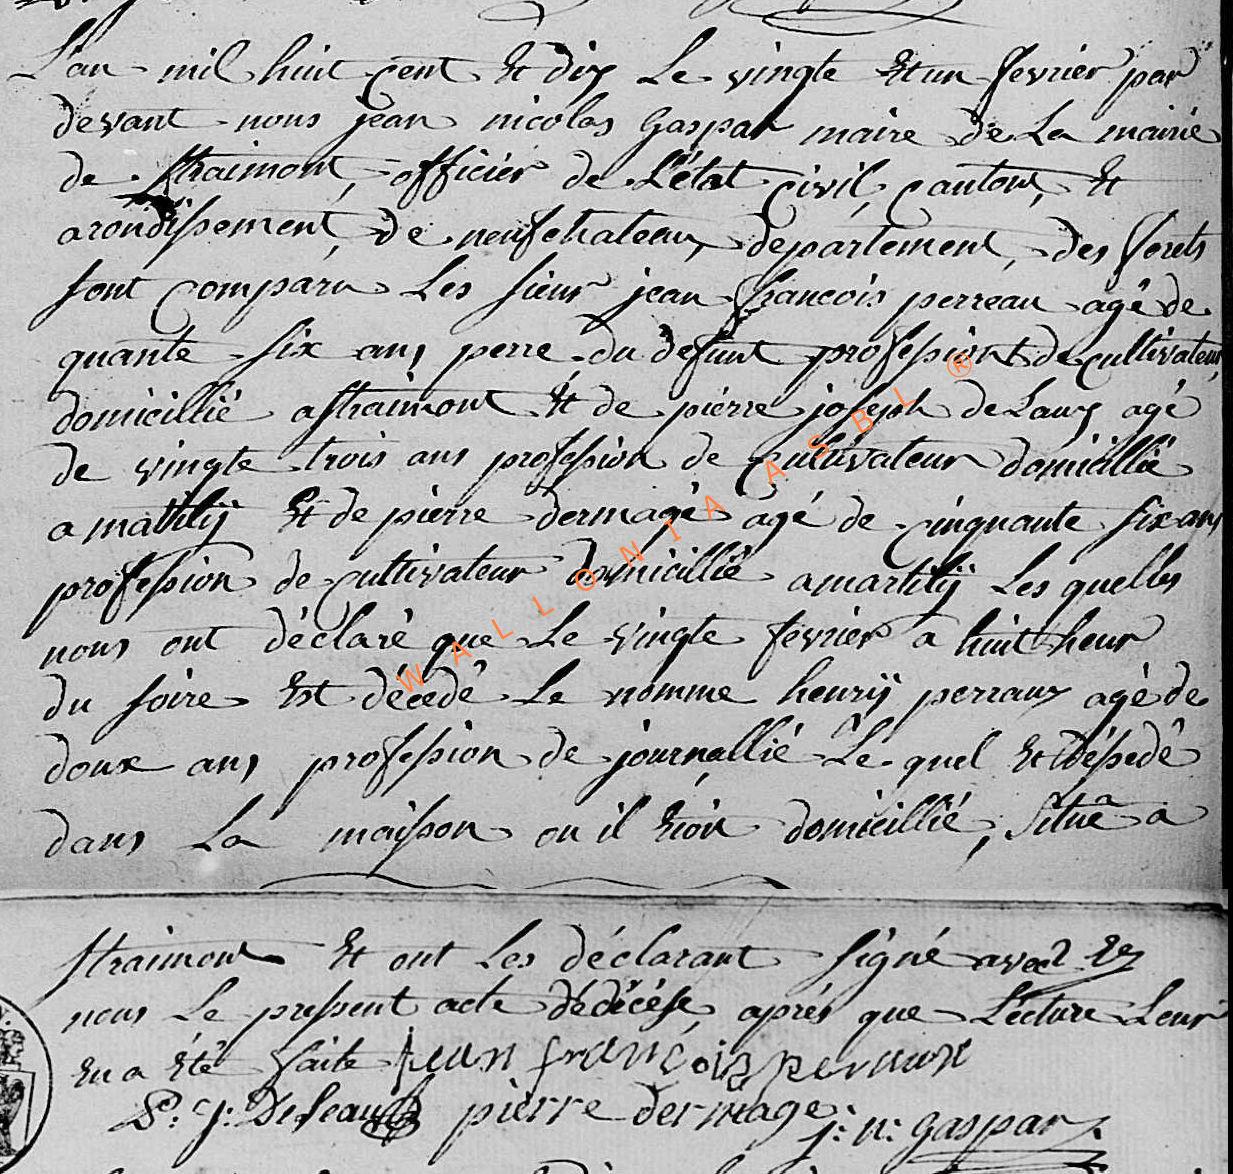 L'an mil huit cent Et dix Le vingte Et un fevrier par
devant nous jean nicolas Gaspar maire de La mairie
de straimont, officier de L'état civil, canton, Et
arondissement, de neufchateau, département, des forets
sont comparu Les sieur jean francois perreau agé de
quante six ans perre du defunt profession de cultivateur
domicillié a straimont Et de pierre joseph deLaux agé
de vingte trois ans profession de cultivateur domicillié
a martilij Et de pierre dermagé agé de cinquante six ans
profession de cultivateur domicillié a martilij Les quelles
nous ont déclaré que Le vingte fevrier a huit heur
du soire Est décedé Le nomme henrij perraux agé de
doux ans profession de journallié Le quel Et déssedê
dans La maison ou il domicillié, situê a
straimont Et ont Les déclarant signé avec
nous Le present acte dédécése aprés que Lecture Leur
En a été faite jean francois perraux
P: j: DeLeau pierre dermage j: n: Gaspar
WALLONIA ASBL ®